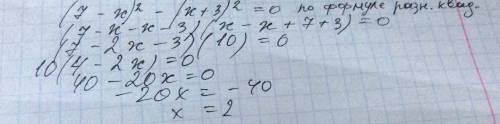 (7 - x)² - (x+3)² = 0 по формуле разн. квад.
(7 - x - x - 3)(x - x + 7 + 3) = 0
(7 - 2x - 3)(10) = 0
10(4 - 2x) = 0
40 - 20x = 0
-20x = -40
x = 2